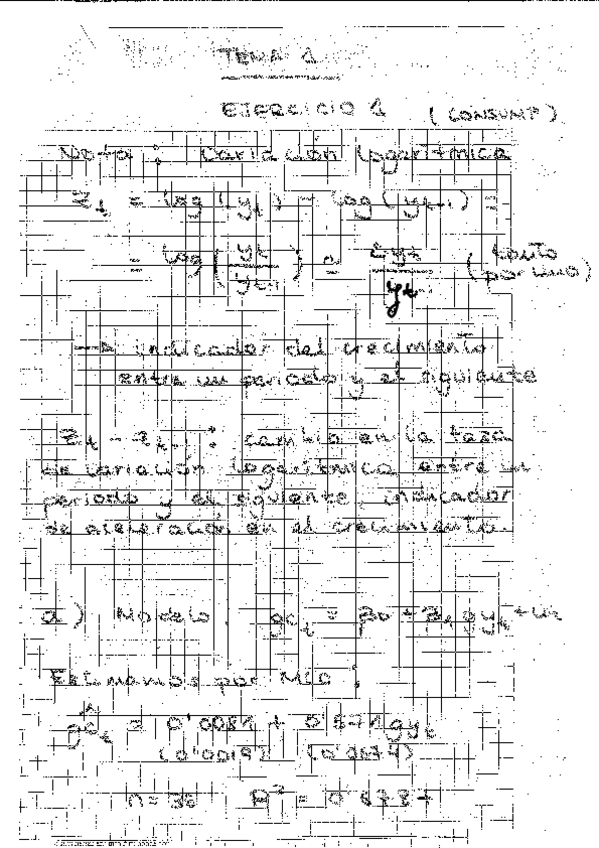 TEMA 1
EJERCICIO 1 (CONSUMP)
Nota: Variación logarítmica
z_t = log(y_t) - log(y_{t-1}) =
= log(y_t / y_{t-1}) ≃ Δy_t / y_t (tanto por uno)
→ indicador del crecimiento
entre un periodo y el siguiente
z_t - z_{t-1}: cambio en la tasa
de variación logarítmica entre un
periodo y el siguiente, indicador
de aceleración en el crecimiento.
a) Modelo gc_t = β0 + β1 gy_t + u_t
Estimamos por MCO:
ĝc_t = 0'0081 + 0'571 gy_t
(0'0019) (0'0674)
n = 36 R² =